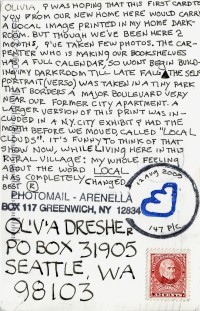 OLIVIA, I WAS HOPING THAT THIS FIRST CARD TO
YOU FROM OUR NEW HOME HERE WOULD CARRY
A LOCAL IMAGE PRINTED IN MY HOME DARK-
ROOM. BUT THOUGH WE'VE BEEN HERE 2
MONTHS, I'VE TAKEN FEW PHOTOS. THE CAR-
PENTER WHO IS MAKING OUR BOOKSHELVES
HAS A FULL CALENDAR, SO WON'T BEGIN BUILD-
ING MY DARKROOM TILL LATE FALL. THE SELF
PORTRAIT (VERSO) WAS TAKEN IN A TINY PARK
THAT BORDERS A MAJOR BOULEVARD VERY
NEAR OUR FORMER CITY APARTMENT. A
LARGER VERSION OF THIS PRINT WAS IN-
CLUDED IN A N.Y. CITY EXHIBIT I HAD THE
MONTH BEFORE WE MOVED, CALLED "LOCAL
CLOUDS". IT'S FUNNY TO THINK OF THAT
SHOW NOW, WHILE LIVING HERE IN THIS
RURAL VILLAGE: MY WHOLE FEELING
ABOUT THE WORD LOCAL
HAS COMPLETELY CHANGED.
BEST R
PHOTOMAIL - ARENELLA
BOX 117 GREENWICH, NY 12834
AUG 2009
147 PIC
OLIVIA DRESHER
PO BOX 31905
SEATTLE, WA
98103